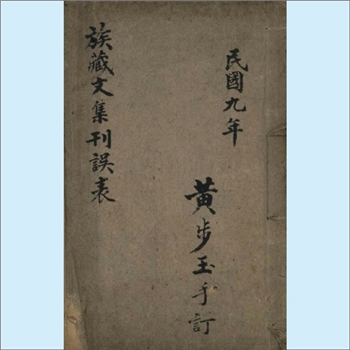 民國九年
黃步玉手訂
族藏文集刊誤表